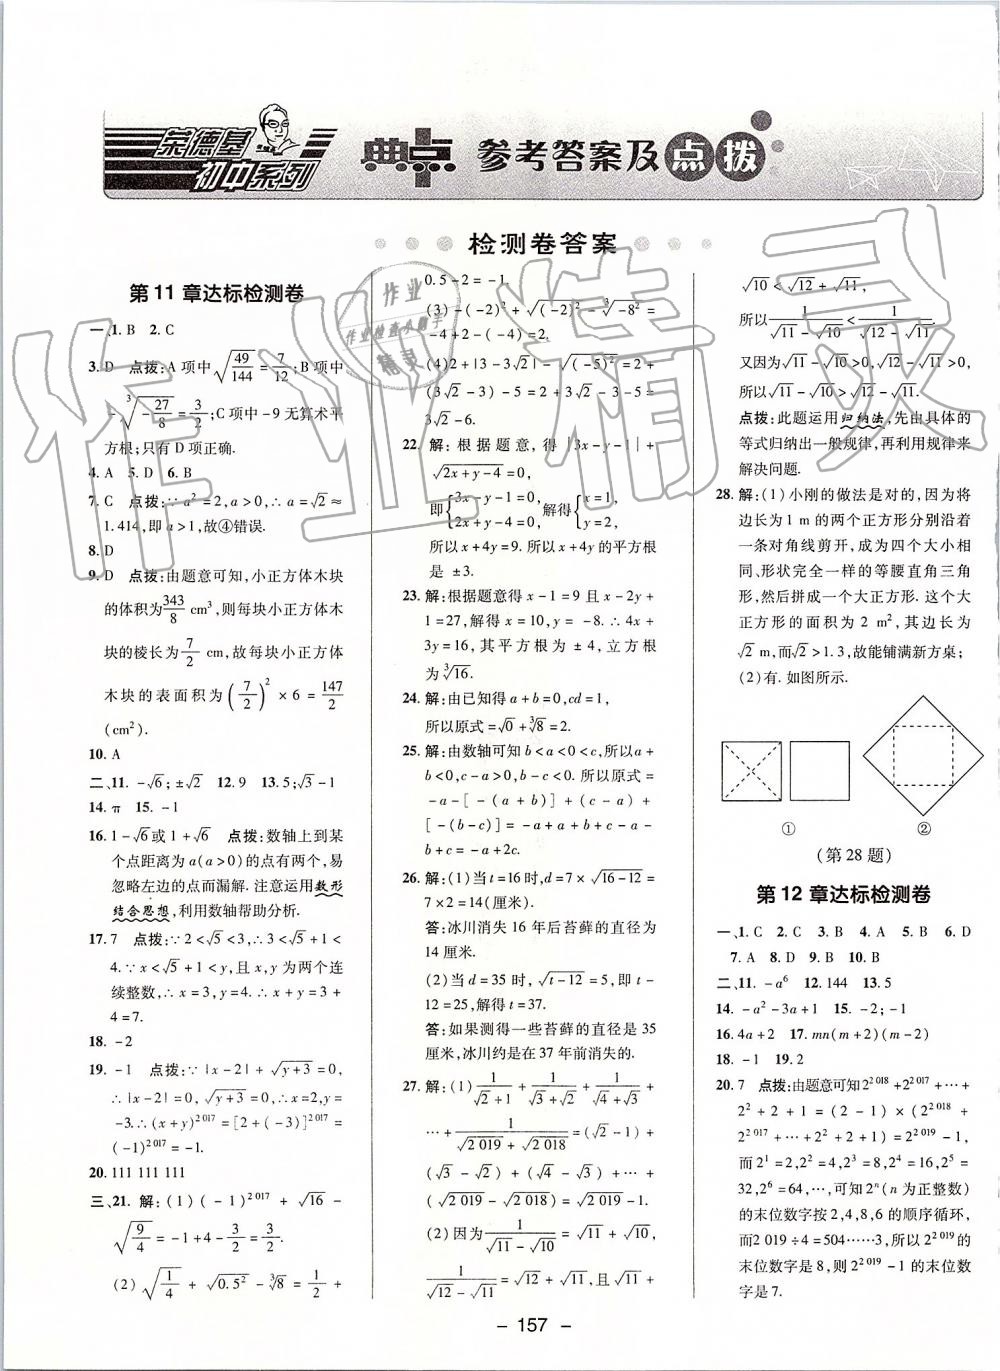 荣德基
初中系列
典点 参考答案及点拨
检测卷答案
第 11 章达标检测卷
一、1. B 2. C
3. D 点拨:A 项中 √(49/144) = 7/12;B 项中
-∛(-27/8) = 3/2;C 项中 -9 无算术平
方根;只有 D 项正确.
4. A 5. D 6. B
7. C 点拨:∵a²=2,a>0,∴a=√2≈
1.414,即 a>1,故④错误.
8. D
9. D 点拨:由题意可知,小正方体木块
的体积为 343/8 cm³,则每块小正方体木
块的棱长为 7/2 cm,故每块小正方体
木块的表面积为 (7/2)² × 6 = 147/2
(cm²).
10. A
二、11. -√6;±√2 12. 9 13. 5;√3-1
14. π 15. -1
16. 1-√6或 1+√6 点拨:数轴上到某
个点距离为 a(a>0)的点有两个,易
忽略左边的点而漏解. 注意运用数形
结合思想,利用数轴帮助分析.
17. 7 点拨:∵2<√5<3,∴3<√5+1<
4.∵x<√5+1<y,且 x,y 为两个连
续整数,∴x=3,y=4.∴x+y=3+
4=7.
18. -2
19. -1 点拨:∵|x-2|+√(y+3)=0,
∴|x-2|=0,√(y+3)=0,∴x=2,y=
-3.∴(x+y)^2 017=[2+(-3)]^2 017=
(-1)^2 017=-1.
20. 111 111 111
三、21. 解:(1)(-1)^2 017 + √16 -
√(9/4) = -1+4-3/2=3/2.
(2)√(1/4) + √(0.5²) - ∛8 = 1/2 +
0.5-2=-1.
(3)-(-2)²+√((-2)²)-∛(-8²)=
-4+2-(-4)=2.
(4)2+|3-3√2|-√((-5)²)=2+
(3√2-3)-5=2+3√2-3-5=
3√2-6.
22. 解:根据题意,得|3x-y-1|+
√(2x+y-4)=0,
即{3x-y-1=0, 2x+y-4=0,解得{x=1, y=2,
所以 x+4y=9. 所以 x+4y 的平方根
是 ±3.
23. 解:根据题意得 x-1=9 且 x-2y+
1=27,解得 x=10,y=-8.∴4x+
3y=16,其平方根为 ±4,立方根
为∛16.
24. 解:由已知得 a+b=0,cd=1,
所以原式=√0+∛8=2.
25. 解:由数轴可知 b<a<0<c,所以 a+
b<0,c-a>0,b-c<0. 所以原式=
-a-[-(a+b)]+(c-a)+
[-(b-c)]=-a+a+b+c-a-
b+c=-a+2c.
26. 解:(1)当 t=16 时,d=7×√(16-12)=
7×2=14(厘米).
答:冰川消失 16 年后苔藓的直径为
14 厘米.
(2)当 d=35 时,√(t-12)=5,即 t-
12=25,解得 t=37.
答:如果测得一些苔藓的直径是 35
厘米,冰川约是在 37 年前消失的.
27. 解:(1) 1/(√2+1) + 1/(√3+√2) + 1/(√4+√3) +
…+1/(√2 019+√2 018)=(√2-1)+
(√3-√2)+(√4-√3)+…+
(√2 019-√2 018)=√2 019-1.
(2)因为 1/(√11-√10)=√11+√10,
1/(√12-√11)=√12+√11,且√11+
√10<√12+√11,
所以 1/(√11-√10)<1/(√12-√11).
又因为√11-√10>0,√12-√11>0,
所以√11-√10>√12-√11.
点拨:此题运用归纳法,先由具体的
等式归纳出一般规律,再利用规律来
解决问题.
28. 解:(1)小刚的做法是对的,因为将
边长为 1 m 的两个正方形分别沿着
一条对角线剪开,成为四个大小相
同、形状完全一样的等腰直角三角
形,然后拼成一个大正方形. 这个大
正方形的面积为 2 m²,其边长为
√2 m,而√2>1.3,故能铺满新方桌;
(2)有. 如图所示.
① ②
(第 28 题)
第 12 章达标检测卷
一、1. C 2. C 3. B 4. A 5. B 6. D
7. A 8. D 9. B 10. B
二、11. -a⁶ 12. 144 13. 5
14. -a²-3a+1 15. -2;-1
16. 4a+2 17. mn(m+2)(m-2)
18. -1 19. 2
20. 7 点拨:由题意可知2^2 018+2^2 017+…+
2²+2+1=(2-1)×(2^2 018+
2^2 017+…+2²+2+1)=2^2 019-1,
而 2¹=2,2²=4,2³=8,2⁴=16,2⁵=
32,2⁶=64,…,可知 2ⁿ(n 为正整数)
的末位数字按 2,4,8,6 的顺序循环,
而2 019÷4=504……3,所以 2^2 019的
末位数字是 8,则 2^2 019-1 的末位数
字是 7.
- 157 -
作业精灵
作业
作业检查小助手
精灵